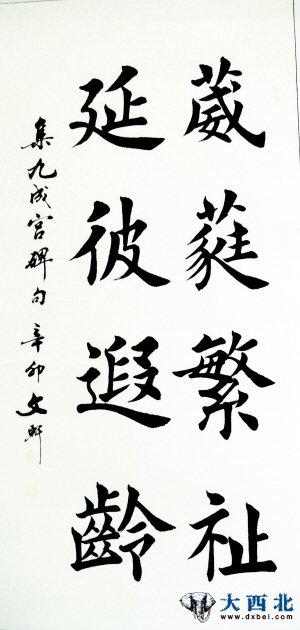 葳蕤繁祉
延彼遐齡
集九成宮碑句 辛卯 文軒
大西北
www.dxbei.com